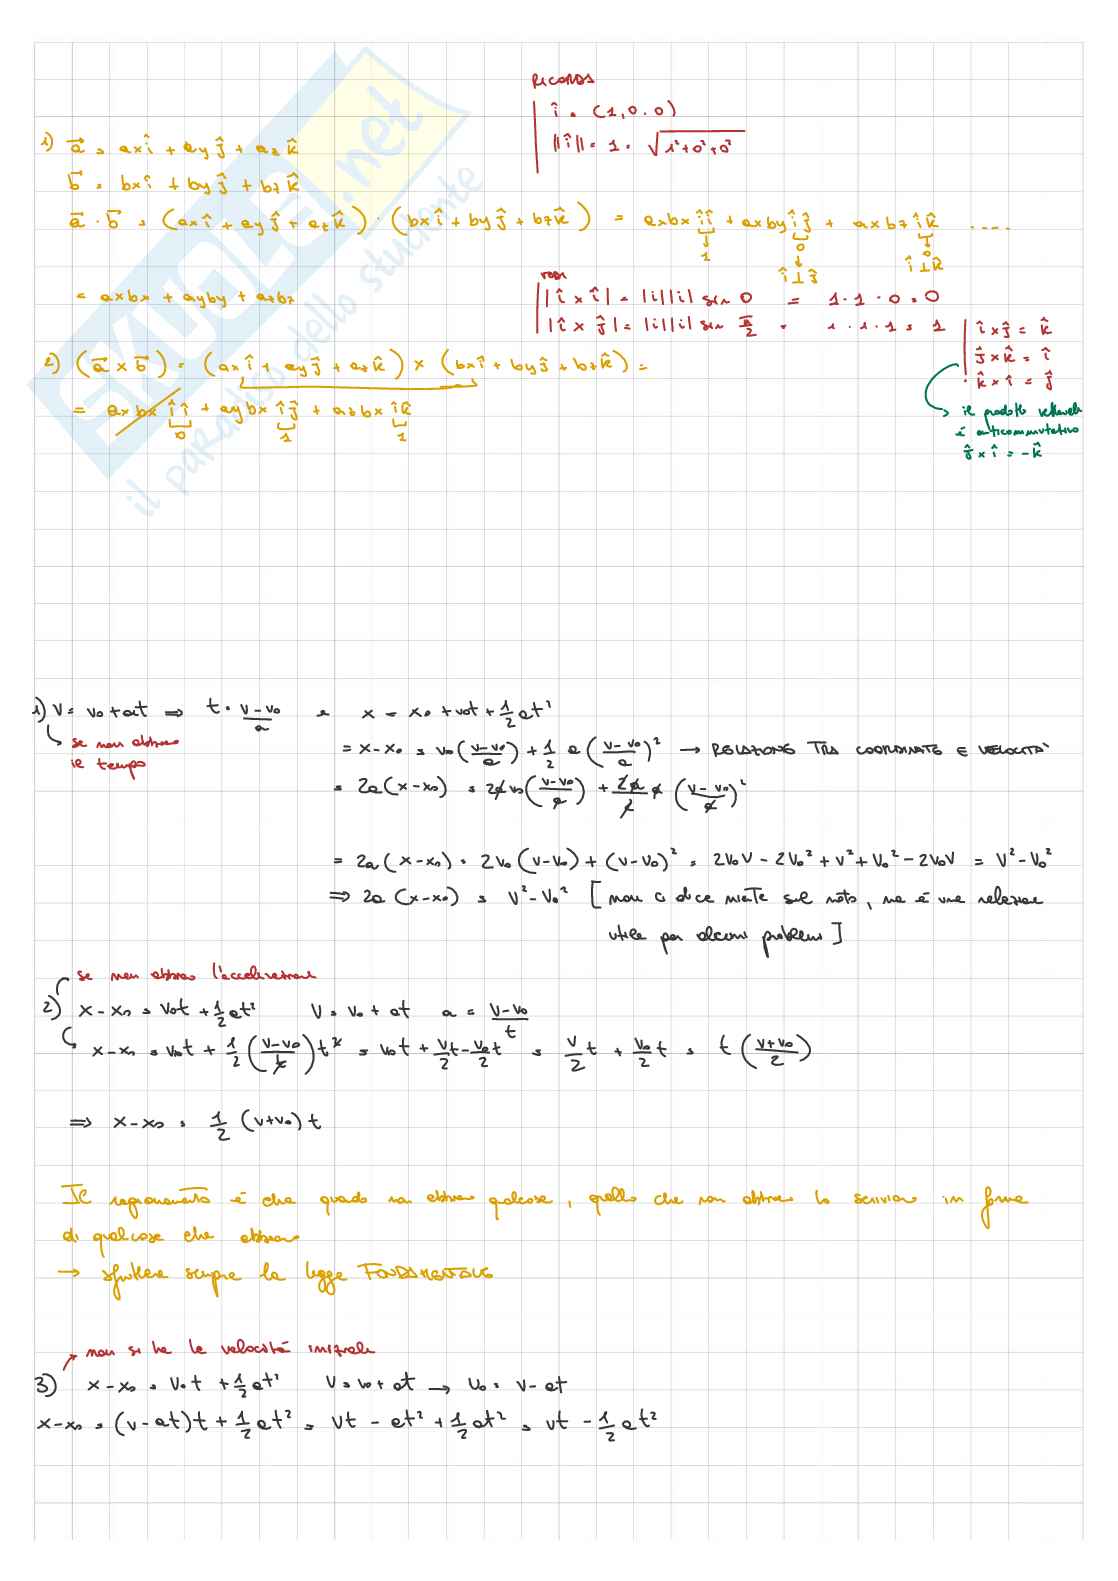 RICORDA
î = (1,0,0)
||î|| = 1 = √1²+0²+0²
1) a⃗ = axî + ayĵ + azk̂
b⃗ = bxî + byĵ + bzk̂
a⃗ · b⃗ = (axî + ayĵ + azk̂) · (bxî + byĵ + bzk̂) = axbx îî + axby îĵ + axbz îk̂ ....
1 0 0
î⊥ĵ î⊥k̂
= axbx + ayby + azbz
|î × î| = |i||i| sin 0 = 1·1·0 = 0
|î × ĵ| = |i||i| sin π/2 = 1·1·1 = 1
î × ĵ = k̂
ĵ × k̂ = î
k̂ × î = ĵ
il prodotto vettoriale
è anticommutativo
ĵ × î = -k̂
2) (a⃗ × b⃗) = (axî + ayĵ + azk̂) × (bxî + byĵ + bzk̂) =
= axbx îî + aybx îĵ + azbx îk̂
0 1 1
1) V = v₀ + at ⇒ t = (v-v₀)/a e x = x₀ + v₀t + 1/2 at²
se non abbiamo
il tempo
= x-x₀ = v₀((v-v₀)/a) + 1/2 a((v-v₀)/a)² → RELAZIONE TRA COORDINATE E VELOCITA'
= 2a(x-x₀) = 2a v₀((v-v₀)/a) + 2a/2 a((v-v₀)/a)²
= 2a(x-x₀) = 2v₀(v-v₀) + (v-v₀)² = 2v₀v - 2v₀² + v² + v₀² - 2v₀v = v² - v₀²
⇒ 2a(x-x₀) = v² - v₀² [non ci dice niente sul moto, ma è una relazione
utile per alcuni problemi]
se non abbiamo l'accelerazione
2) x-x₀ = v₀t + 1/2 at² V = v₀ + at a = (v-v₀)/t
x-x₀ = v₀t + 1/2((v-v₀)/t)t² = v₀t + vt/2 - v₀t/2 = v/2 t + v₀/2 t = t((v+v₀)/2)
⇒ x-x₀ = 1/2 (v+v₀)t
Il ragionamento è che quando non abbiamo qualcosa, quello che non abbiamo lo scriviamo in forma
di qualcosa che abbiamo
→ sfruttare sempre la legge FONDAMENTALE
non si ha la velocità iniziale
3) x-x₀ = v₀t + 1/2 at² V = v₀ + at → v₀ = v-at
x-x₀ = (v-at)t + 1/2 at² = vt - at² + 1/2 at² = vt - 1/2 at²
SKUOLA.net
il paradiso dello studente